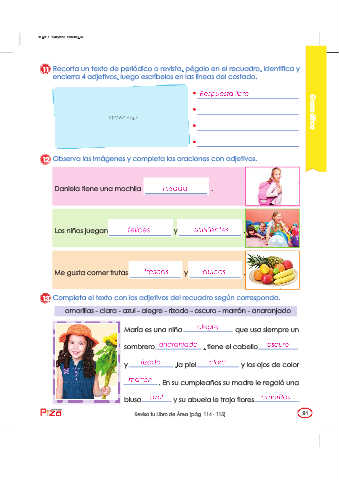 11 Recorta un texto de periódico o revista, pégalo en el recuadro, identifica y
encierra 4 adjetivos, luego escríbelos en las líneas del costado.
Respuesta libre
12 Observa las imágenes y completa las oraciones con adjetivos.
Daniela tiene una mochila rosada .
Los niños juegan felices y
Me gusta comer frutas frescas y dulces .
13 Completa el texto con los adjetivos del recuadro según corresponda.
amarillas - clara - azul - alegre - rizado - oscura - marrón - anaranjado
María es una niña alegre que usa siempre un
sombrero anaranjado , tiene el cabello oscuro
y rizado , la piel clara y los ojos de color
marrón . En su cumpleaños su madre le regaló una
blusa azul y su abuela le trajo flores amarillas
Revisa tu Libro de Área (pág. 114 - 115)